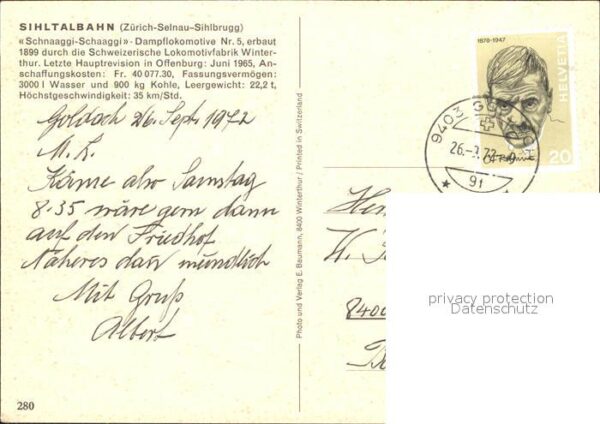 SIHLTALBAHN (Zürich-Selnau-Sihlbrugg)
«Schnaaggi-Schaaggi» - Dampflokomotive Nr. 5, erbaut
1899 durch die Schweizerische Lokomotivfabrik Winter-
thur. Letzte Hauptrevision in Offenburg: Juni 1965, An-
schaffungskosten: Fr. 40 077.30, Fassungsvermögen:
3000 l Wasser und 900 kg Kohle, Leergewicht: 22,2 t,
Höchstgeschwindigkeit: 35 km/Std.
Goldach 26. Sept. 1972
M. L.
Käme also Samstag
8.35 wäre gern dann
auf den Friedhof
Näheres dan mündlich
Mit Gruß
Albert
280
Photo und Verlag E. Baumann, 8400 Winterthur / Printed in Switzerland
1878-1947
HELVETIA
20
9403
26.-
91
W.
8400
privacy protection
Datenschutz